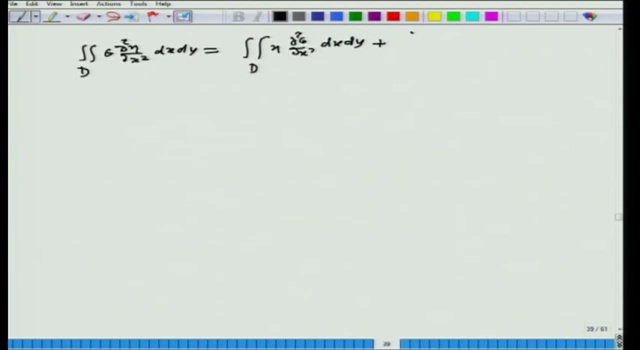 File View Insert Actions Tools Help
∬_D G ∂²η/∂x² dxdy = ∬_D η ∂²G/∂x² dxdy +
B
29 / 61
29